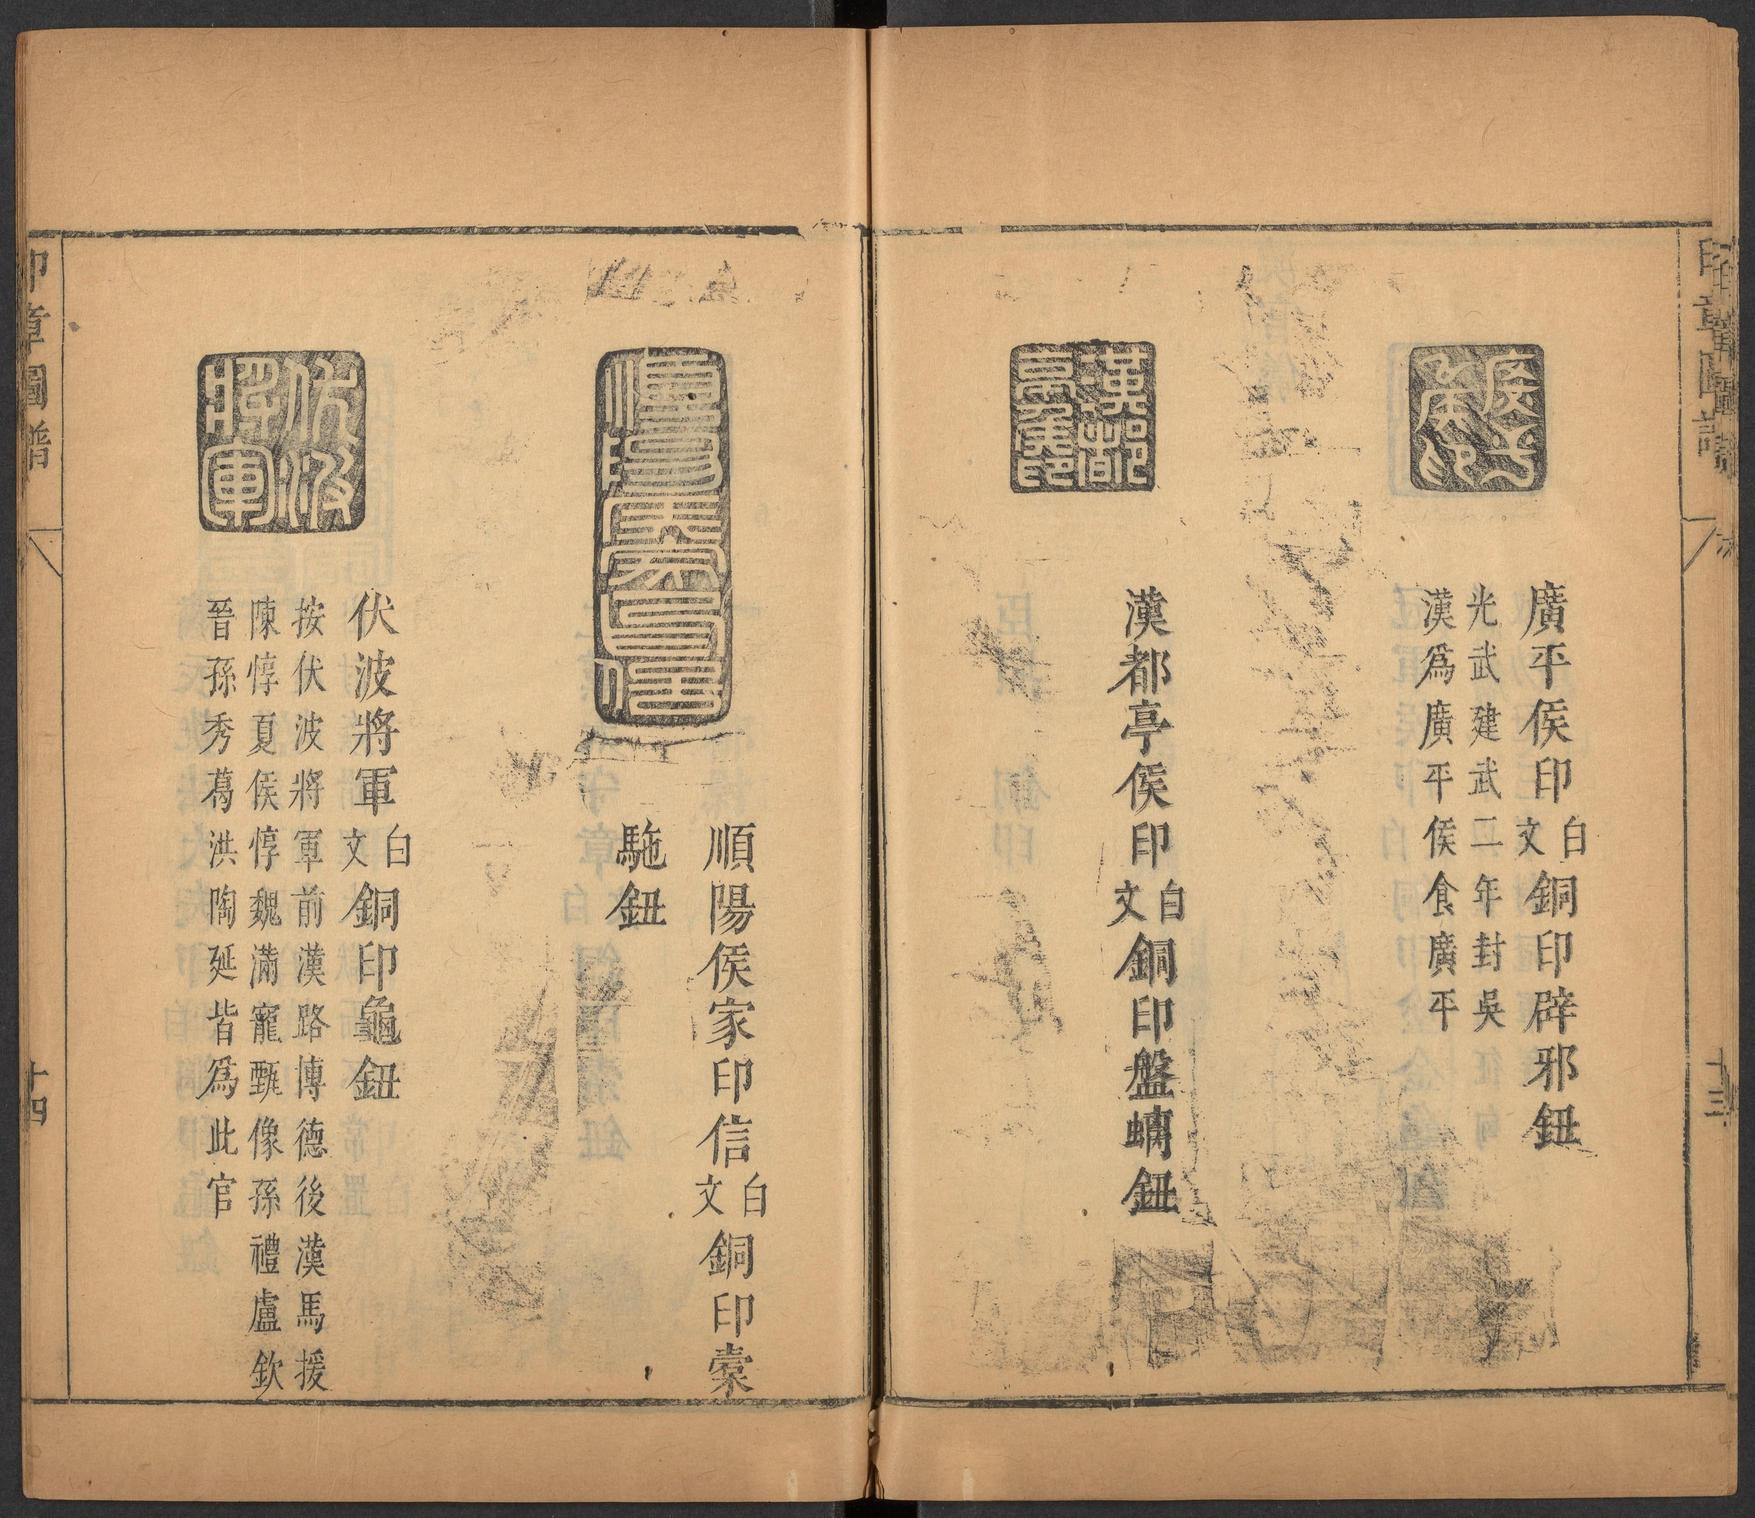 印章圖譜
十三
廣平侯印白文銅印辟邪鈕
光武建武二年封吳
漢爲廣平侯食廣平
漢都亭侯印白文銅印盤螭鈕
順陽侯家印信白文銅印橐
駞鈕
伏波將軍白文銅印龜鈕
按伏波將軍前漢路博德後漢馬援
陳惇夏侯惇魏滿寵甄像孫禮盧欽
晉孫秀葛洪陶延皆爲此官
伏波
將軍
印章圖譜
十四